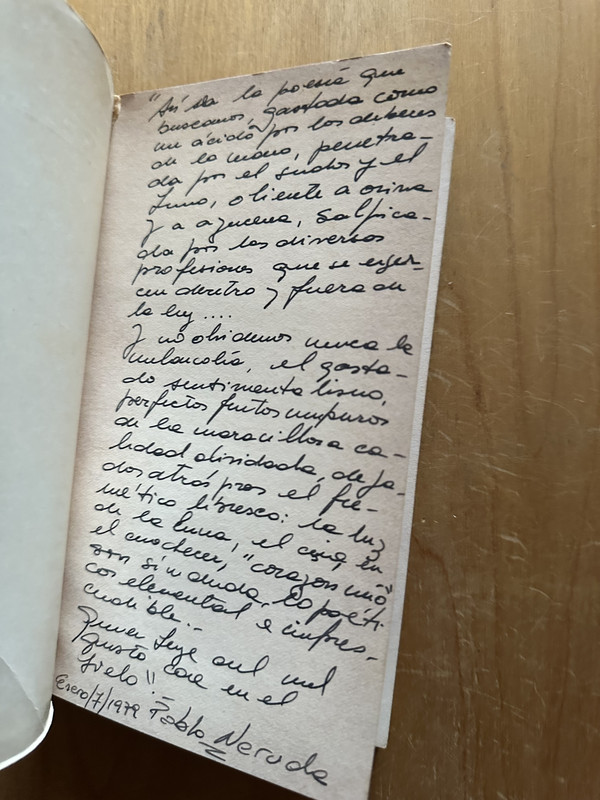 "Así sea la poesía que
buscamos, gastada como
un ácido por los deberes
de la mano, penetra-
da por el sudor y el
humo, oliente a orina
y a azucena, salpica-
da por las diversas
profesiones que se ejer-
cen dentro y fuera de
la ley....
Y no olvidemos nunca la
melancolía, el gasta-
do sentimentalismo,
perfectos frutos impuros
de la maravillosa ca-
lidad olvidada, deja-
dos atrás por el fre-
nético libresco: la luz
de la luna, el cisne en
el anochecer, "corazón mío"
son sin duda lo poéti-
co elemental e impres-
cindible..
Quien huye del mal
gusto cae en el
hielo".
Enero/7/1979 Pablo Neruda